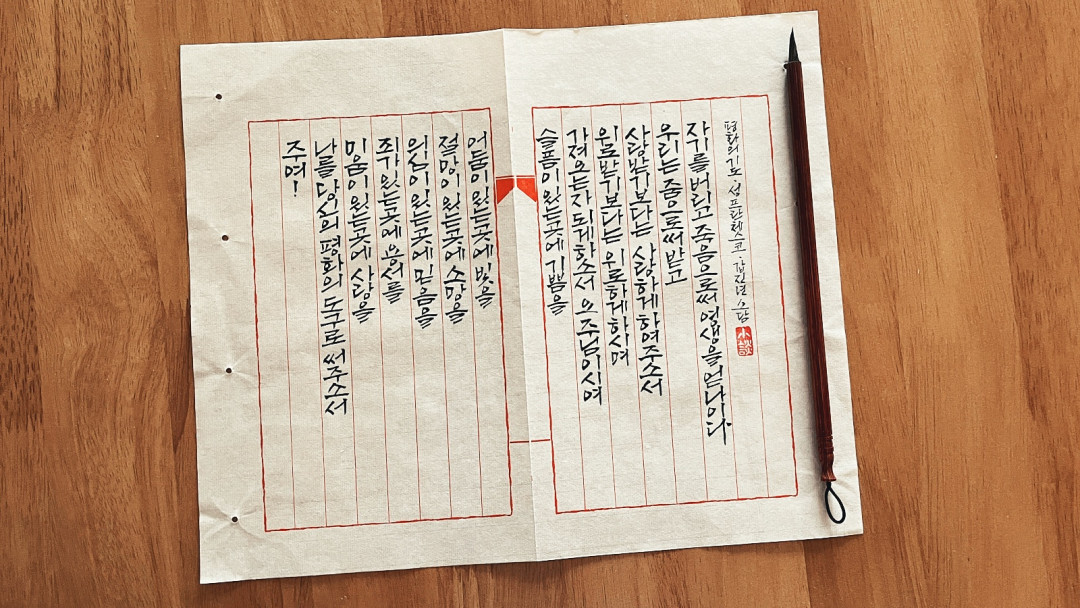 주여!
나를 당신의 평화의 도구로 써주소서
미움이 있는곳에 사랑을
죄가 있는곳에 용서를
의심이 있는곳에 믿음을
절망이 있는곳에 소망을
어둠이 있는곳에 빛을
슬픔이 있는곳에 기쁨을
가져오는자 되게하소서 오 주님이시여
위로받기보다는 위로하게하시며
사랑받기보다는 사랑하게하여주소서
우리는 줌으로써 받고
자기를 버리고 죽음으로써 영생을 얻나이다
평화의 기도 · 성 프란체스코 · 갑진년 소담